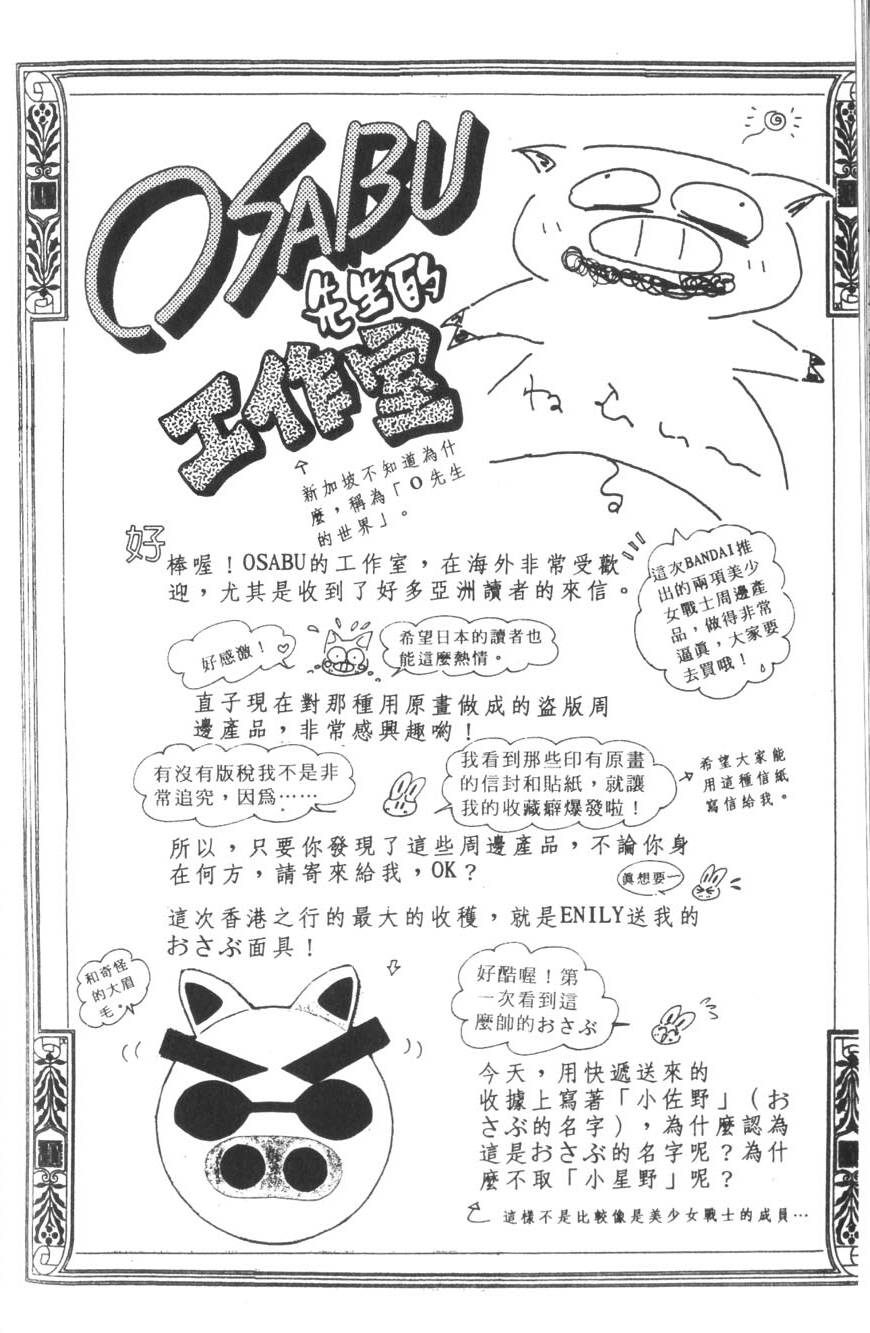 OSABU
先生的
工作室
ねむい
新加坡不知道為什
麼,稱為「O先生
的世界」。
好
棒喔!OSABU的工作室,在海外非常受歡
迎,尤其是收到了好多亞洲讀者的來信。
這次BANDAI推
出的兩項美少
女戰士周邊產
品,做得非常
逼眞,大家要
去買哦!
好感激!♡
希望日本的讀者也
能這麼熱情。
直子現在對那種用原畫做成的盜版周
邊產品,非常感興趣喲!
有沒有版稅我不是非
常追究,因爲……
我看到那些印有原畫
的信封和貼紙,就讓
我的收藏癖爆發啦!
希望大家能
用這種信紙
寫信給我。
所以,只要你發現了這些周邊產品,不論你身
在何方,請寄來給我,OK?
眞想要一
這次香港之行的最大的收穫,就是ENILY送我的
おさぶ面具!
和奇怪
的大眉
毛。
好酷喔!第
一次看到這
麼帥的おさぶ
今天,用快遞送來的
收據上寫著「小佐野」(お
さぶ的名字),為什麼認為
這是おさぶ的名字呢?為什
麼不取「小星野」呢?
這樣不是比較像是美少女戰士的成員…